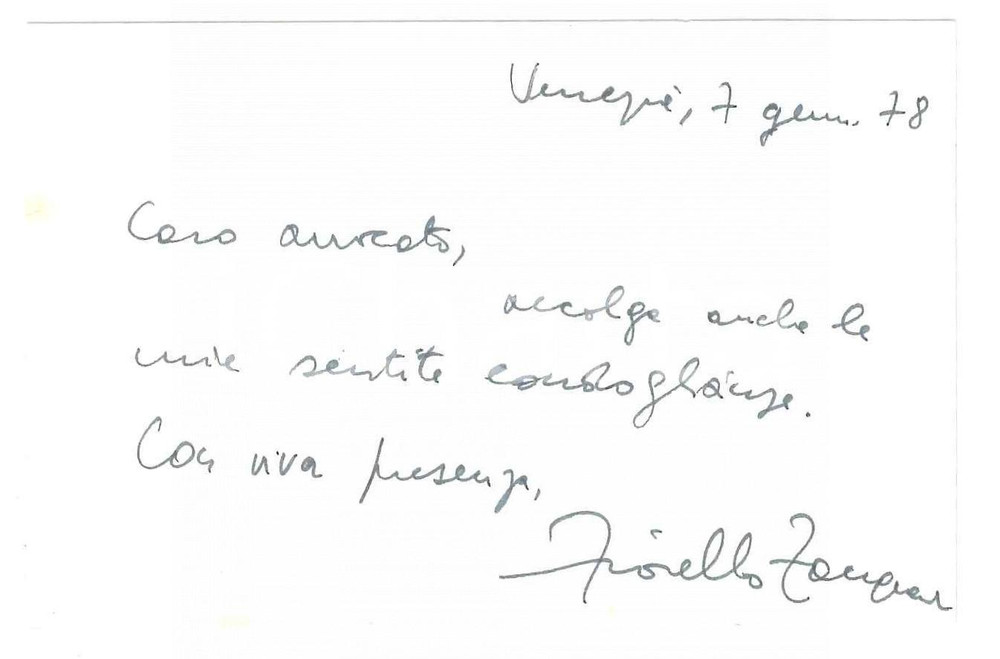 Venezia, 7 genn. 78
Caro avvocato,
accolga anche le
mie sentite condoglianze.
Con viva presenza,
Fiorello Zangrando